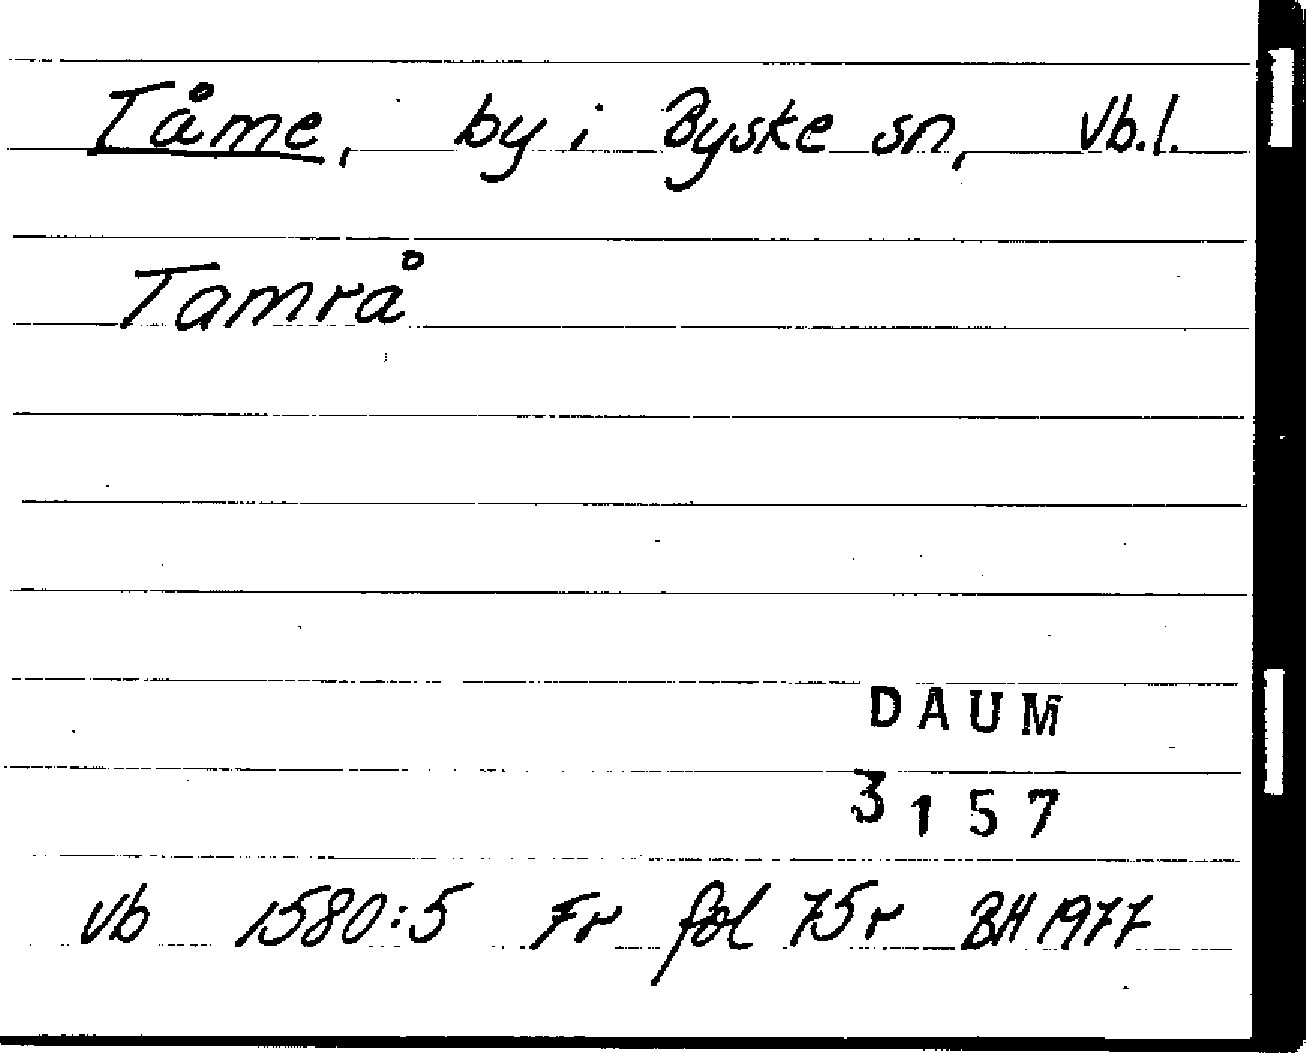 Tåme, by i Byske sn, Vb.l.
Tamrå
DAUM
3157
Vb 1580:5 Fr fol 75r BH 1977